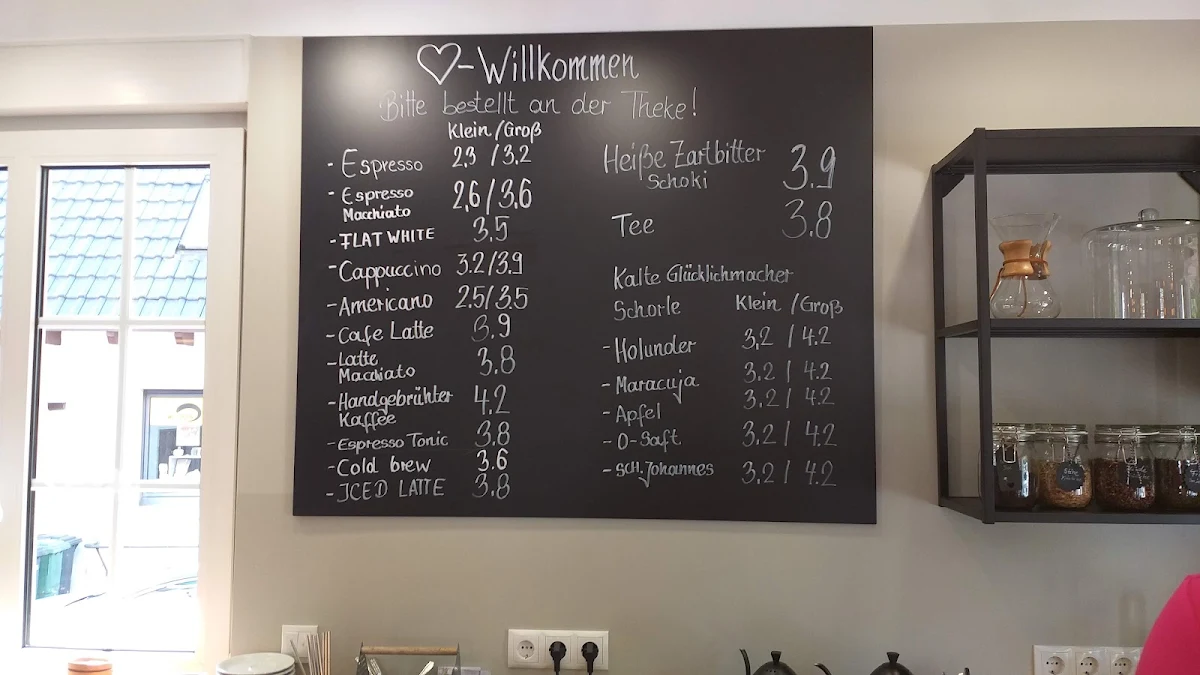 ♡-Willkommen
Bitte bestellt an der Theke!
Klein/Groß
- Espresso 2,3 / 3.2
- Espresso Macchiato 2,6/3.6
- FLAT WHITE 3.5
- Cappuccino 3.2/3.9
- Americano 2.5/3.5
- Cafe Latte 3.9
- Latte Macchiato 3.8
- Handgebrühter Kaffee 4.2
- Espresso Tonic 3.8
- Cold brew 3.6
- ICED LATTE 3.8
Heiße Zartbitter Schoki 3.9
Tee 3.8
Kalte Glücklichmacher
Schorle Klein/Groß
- Holunder 3,2 / 4.2
- Maracuja 3.2 / 4.2
- Apfel 3.2 / 4.2
- O-Saft 3,2 / 4.2
- SCH.Johannes 3,2 / 4.2